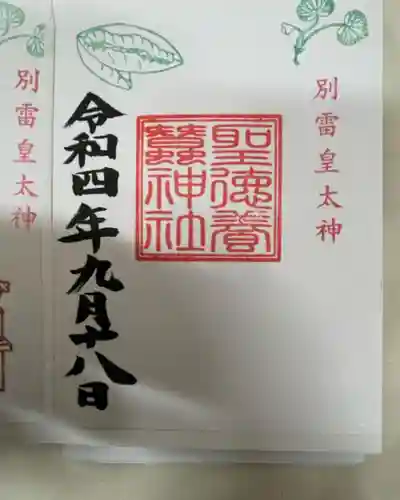 別雷皇太神
聖徳養
蠶神社
令和四年九月十八日
別雷皇太神